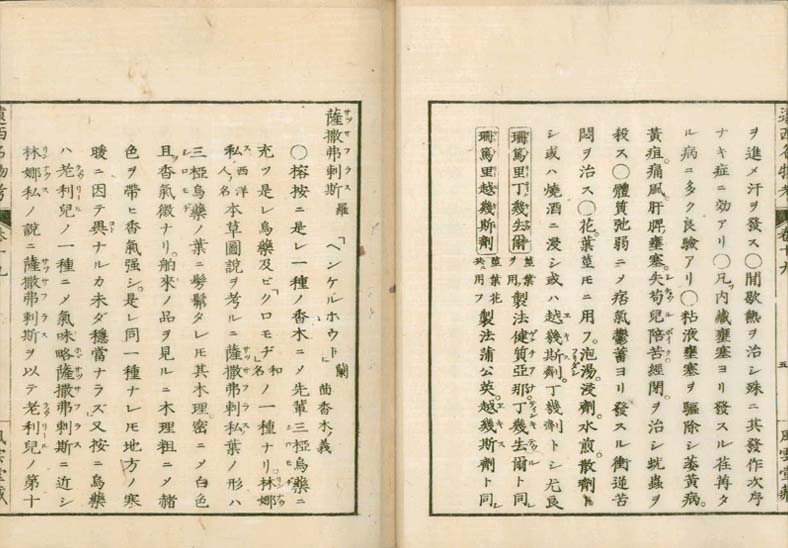 ヲ進メ汗ヲ發ス〇間歇熱ヲ治シ殊ニ其發作次序
ナキ症ニ効アリ〇凡ソ内臓壅塞ヨリ發スル荏苒タ
ル病ニ多ク良驗アリ〇粘液壅塞ヲ驅除シ萎黄病。
黄疸。痛風。肝脾壅塞。失苟兒陪苦。經閉。ヲ治シ蚘蟲ヲ
殺ス〇體質弛弱ニメ痞氣鬱蓄ヨリ發スル衝逆苦
悶ヲ治ス〇花。葉莖モニ用フ。泡湯。浸劑。水煎。散劑ト
シ或ハ燒酒ニ浸シ或ハ越幾斯劑。丁幾劑トシ尤良
珊篤里丁幾生爾 莖葉ヲ用フ 製法健質亞那。丁幾生爾ト同シ
珊篤里越幾斯劑 莖葉花共ニ用フ 製法蒲公英。越幾斯劑ト同シ
薩撒弗剌斯 羅 「ヘンケルホウト」 蘭 茴香木ノ義
〇榕按ニ是レ一種ノ香木ニメ先輩三椏烏藥ニ
充ツ是レ烏藥及ビ「クロモヂ」和名ノ一種ナリ。林娜
私 西洋人ノ名 本草圖說ヲ考ルニ薩撒弗剌私葉ノ形ハ
三椏烏藥ノ葉ニ髣髴タレモ其木理密ニメ白色
且ツ香氣微ナリ。舶來ノ品ヲ見ルニ木理粗ニメ赭
色ヲ帶ヒ香氣强シ。是レ同一種ナレモ地方ノ寒
暖ニ因テ異ナルカ未タ穩當ナラズ又按ニ烏藥
ハ老利兒ノ一種ニメ氣味略薩撒弗剌斯ニ近シ
林娜私ノ說ニ薩撒弗剌斯ヲ以テ老利兒ノ第十
遠西名物考
卷十九
五
風雲堂藏